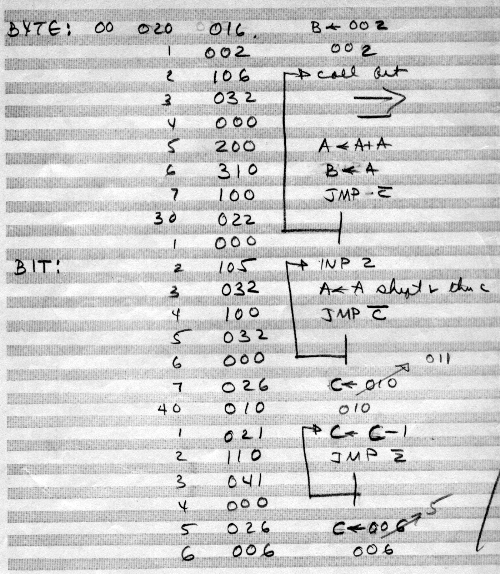 BYTE: 00 020 016. B ← 002
1 002 002
2 106 call bit
3 032
4 000
5 200 A ← A+A
6 310 B ← A
7 100 JMP - C̅
30 022
1 000
BIT: 2 105 INP 2
3 032 A ← A shift r thru c
4 100 JMP C̅
5 032
6 000 011
7 026 C ← 010
40 010 010
1 021 C ← C-1
2 110 JMP Z̅
3 041
4 000 5
5 026 C ← 006
6 006 006